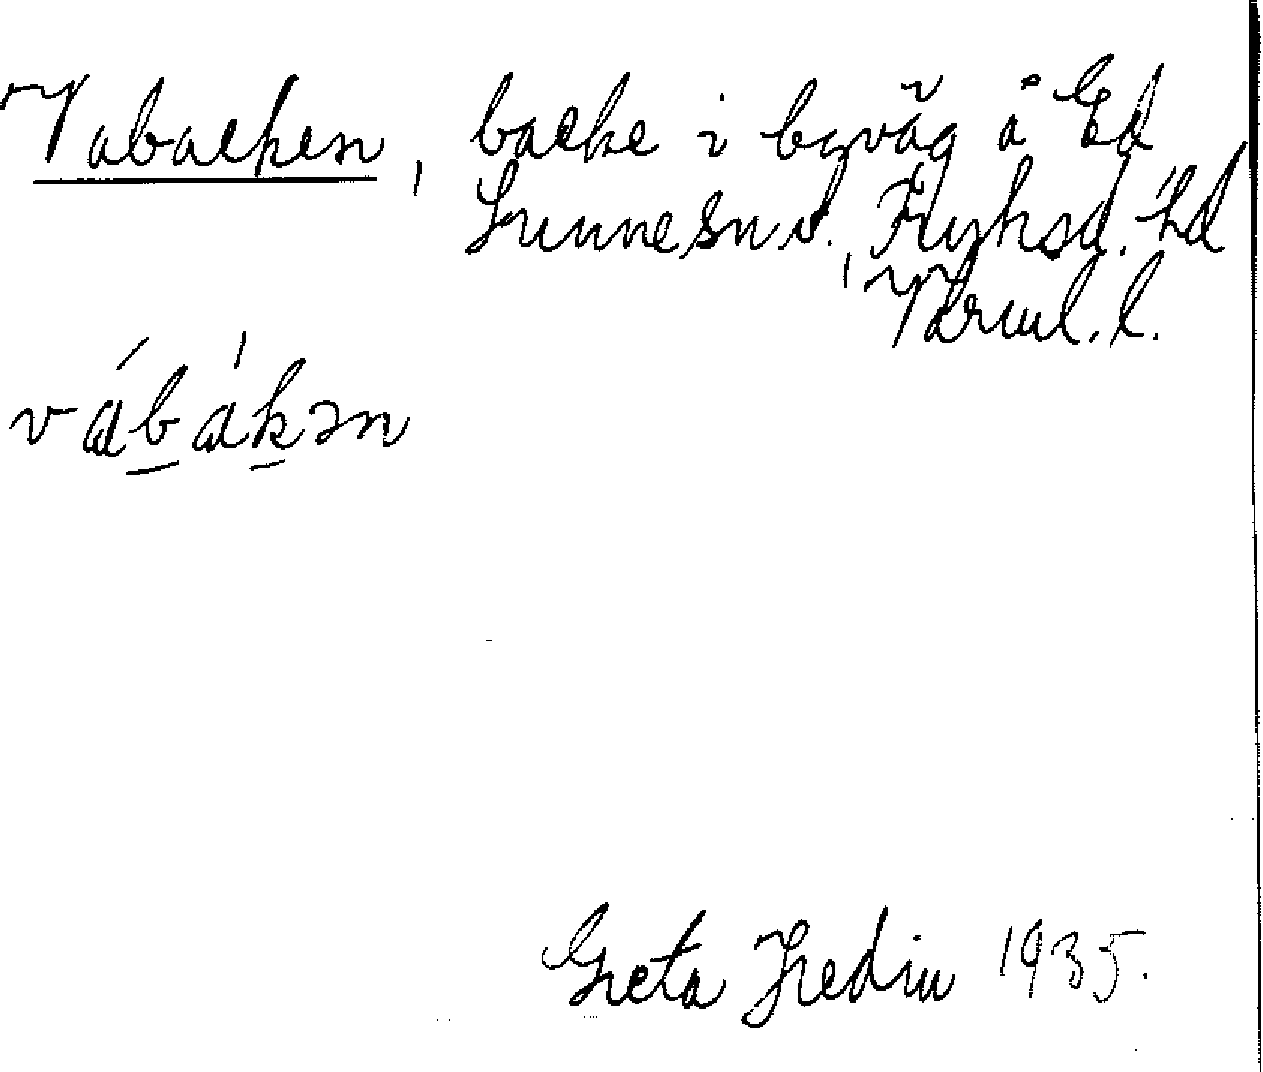 Vabacken, backe i byväg å Ed
Sunne sn., Fryksd. hd
Värml. l.
vábákən
Greta Hedin 1935.